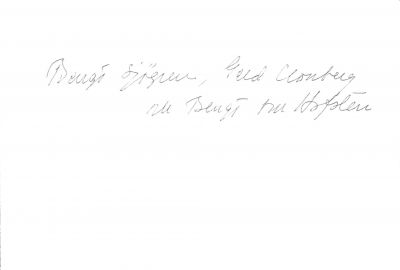 Bengt Sjögren, Gerd Cronberg
och Bengt von Hofsten